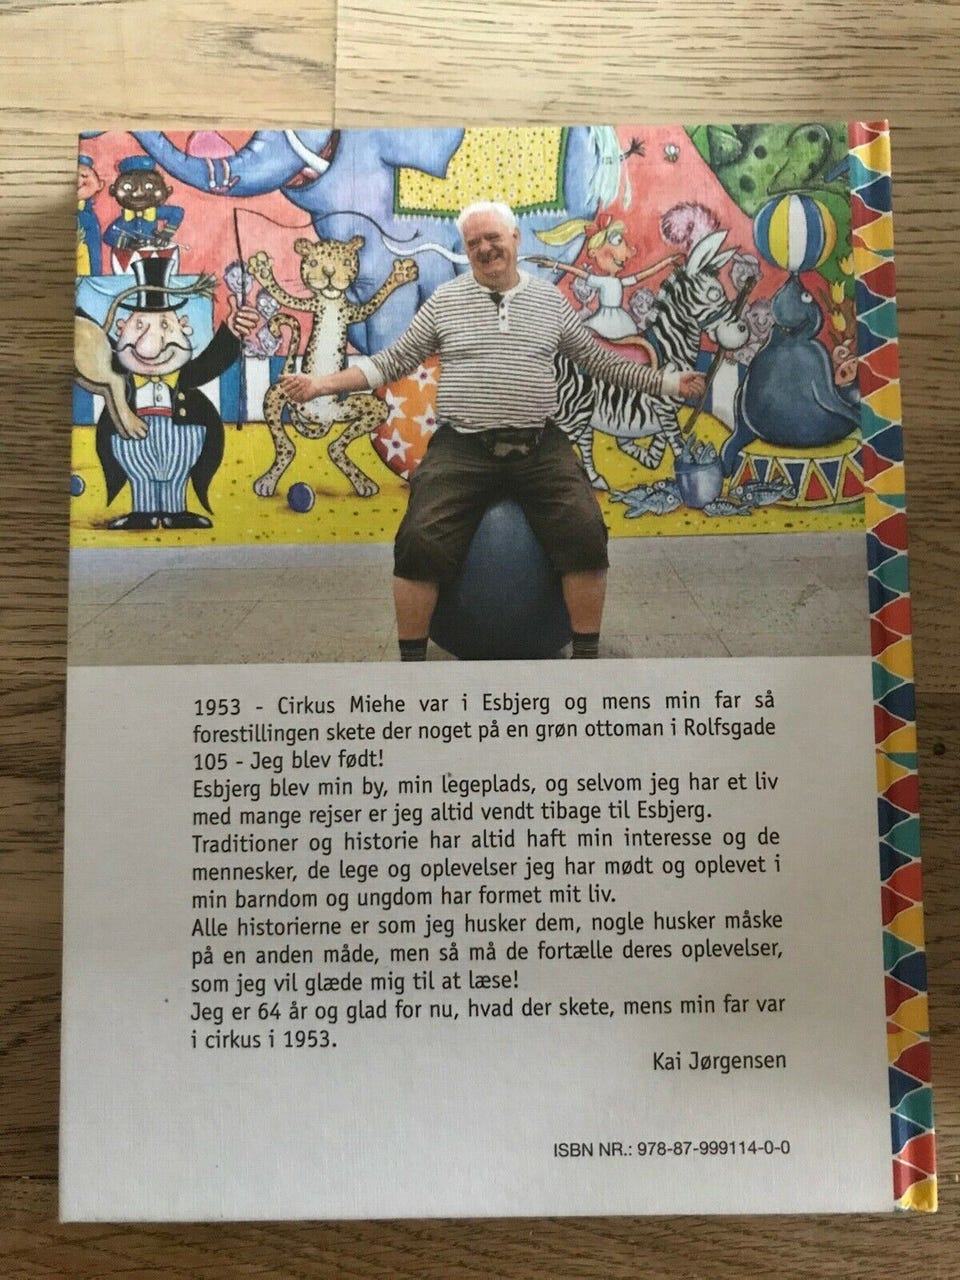 1953 - Cirkus Miehe var i Esbjerg og mens min far så
forestillingen skete der noget på en grøn ottoman i Rolfsgade
105 - Jeg blev født!
Esbjerg blev min by, min legeplads, og selvom jeg har et liv
med mange rejser er jeg altid vendt tibage til Esbjerg.
Traditioner og historie har altid haft min interesse og de
mennesker, de lege og oplevelser jeg har mødt og oplevet i
min barndom og ungdom har formet mit liv.
Alle historierne er som jeg husker dem, nogle husker måske
på en anden måde, men så må de fortælle deres oplevelser,
som jeg vil glæde mig til at læse!
Jeg er 64 år og glad for nu, hvad der skete, mens min far var
i cirkus i 1953.
Kai Jørgensen
ISBN NR.: 978-87-999114-0-0